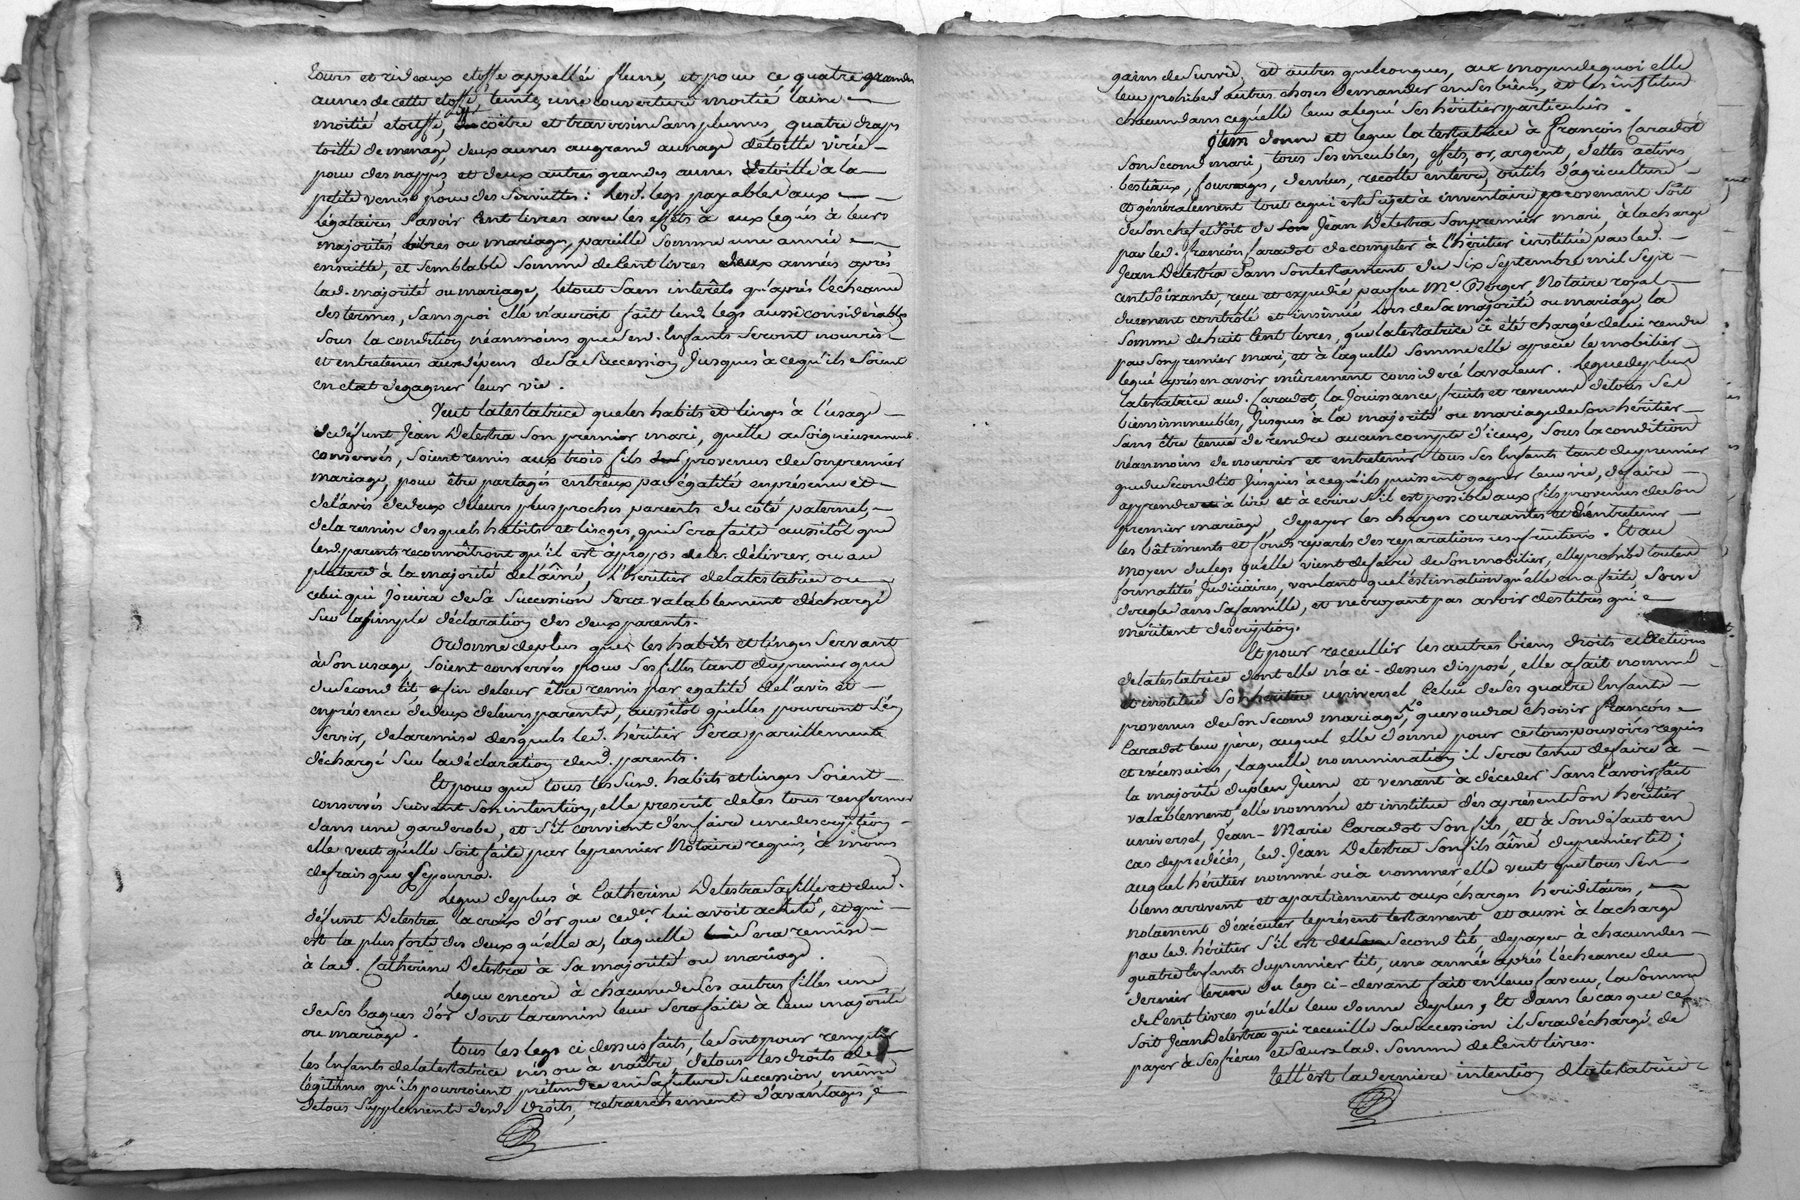 tours et rideaux etoffe appellée fleuré, et pour ce quatre grandes
aunes de cette etoffe, teinte, une couverture moitié laine
moitié etouffe, coëtre et traversin sans plumes, quatre draps
toille de menage, deux aunes au grand aunage de toille
pour des nappes et deux autres grandes aunes de toille à la
petite venise pour des serviettes : lesd. legs payables aux
légataires savoir cent livres avec les effets à eux legués à leurs
majorités ou mariages, pareille somme une année
ensuitte, et semblable somme de cent livres deux années après
lad. majorité ou mariage, le tout sans intérêts qu'après l'écheance
des termes, sans quoi elle n'auroit fait lesd. legs aussi considérables
sous la condition néanmoins que sesd. Enfants seront nourris
et entretenus aux dépens de sa succession jusques à ce qu'ils soient
en etat de gagner leur vie.
Veut la testatrice que les habits et linges à l'usage
de défunt Jean Delestra son premier mari, qu'elle a soigneusement
conservés, soient remis aux trois fils provenus de son premier
mariage, pour être partagés entr'eux par égalité en présence et
de l'avis de deux de leurs plus proches parents du côté paternel,
de la remise desquels habits et linges, qui sera faite aussitôt que
lesd. parents reconnaîtront qu'il est à propos de les délivrer, ou au
plutard à la majorité de l'aîné, l'héritier de la testatrice ou
celui qui jouira de sa succession sera valablement déchargé
sur la simple déclaration des deux parents.
Ordonne de plus que les habits et linges servant
à son usage, soient conservés pour ses filles tant du premier que
du second lit afin de leur être remis par egalité de l'avis et
en présence de deux de leurs parents, aussitôt qu'elles pourront s'en
servir, de la remise desquels led. héritier sera pareillement
déchargé sur la déclaration desd. parents.
Et pour que tous les susd. habits et linges soient
conservés suivant son intention, elle prescrit de les tous renfermer
dans une garderobe, et s'il convient d'en faire une description
elle veut qu'elle soit faite par le premier Notaire requis, à moins
de frais que se pourra.
Legue de plus à Catherine Delestra sa fille et dud.
défunt Delestra la croix d'or que ce der lui avoit acheté, et qui
est la plus forte des deux qu'elle a, laquelle sera remise
à lad. Catherine Delestra à sa majorité ou mariage.
Legue encore à chacune de ses autres filles une
de ses bagues d'or dont la remise leur sera faite à leur majorité
ou mariage.
tous les legs ci dessus faits, le sont pour remplir
les Enfants de la testatrice nés ou à naître, de tous les droits de
légitimes qu'ils pourroient prétendre en sa future succession, même
de tous supplements desd. droits, retranchement d'avantages,
gains de survie, et autres quelconques, au moyen de quoi elle
leur prohibe d'autres choses demander en ses biens, et les institue
chacun dans ce qu'elle leur a legué ses héritiers particuliers.
Item donne et legue la testatrice à François Caradot
son second mari, tous ses meubles, effets, or, argent, dettes actives,
bestiaux, fourrages, denrées, recolte enterre, outils d'agriculture
et généralement tout ce qui est sujet à inventaire provenant soit
de son chef et soit de Jean Delestra son premier mari, à la charge
par led. françois Caradot de compter à l'héritier institué par led.
Jean Delestra dans son testament du six septembre mil sept
cent soixante, reçu et expedié par feu Me Berger Notaire royal
duement contrôlé et insinué lors de sa majorité ou mariage, la
somme de huit cent livres, que la testatrice a été chargée de lui rendre
par son premier mari, et à laquelle somme elle aprecie le mobilier
legué après en avoir mûrement consideré la valeur. Legue de plus
la testatrice aud. Caradot, la jouissance, fruits et revenus de tous ses
biens immeubles, jusques à la majorité ou mariage de son héritier
sans être tenu de rendre aucun compte d'iceux, sous la condition
néanmoins de nourrir et entretenir tous ses Enfants tant du premier
que du second lit jusques à ce qu'ils puissent gagner leur vie, de faire
apprendre à lire et à ecrire s'il est possible aux fils provenus de son
premier mariage, de payer les charges courantes et d'entretenir
les bâtiments et fonds réparés des reparations usufruitiers. Et au
moyen du legs qu'elle vient de faire de son mobilier, elle prohibe toutes
formalités judiciaires, voulant que l'éstimation qu'elle en a faite, serve
de regle dans sa famille, et ne croyant pas avoir des titres qui
méritent description.
Et pour receuillir les autres biens droits et actions
de la testatrice dont elle n'a ci-dessus disposé, elle a fait nommé
et institué son héritier universel celui de ses quatre Enfants
provenus de son second mariage, que voudra choisir françois
Caradot leur père, auquel elle donne pour ce tous pouvoirs requis
et nécessaires, laquelle nommination il sera tenu de faire à
la majorité du plus jeune et venant à décéder sans l'avoir fait
valablement, elle nomme et institue dès aprésent son héritier
universel, Jean-Marie Caradot son fils, et à son défaut en
cas de prédécès, led. Jean Delestra son fils aîné du premier lit ;
auquel héritier nommé ou à nommer elle veut que tous ses
biens arrivent et apartiennent aux charges heriditaires,
notament d'exécuter le présent testament et aussi à la charge
par led. héritier s'il est du second lit, de payer à chacun des
quatre Enfants du premier lit, une année après l'écheance du
dernier terme du legs ci-devant fait en leur faveur, la somme
de cent livres qu'elle leur donne de plus ; Et dans le cas que ce
soit Jean Delestra qui receuille sa succession il sera déchargé de
payer à ses frères et sœurs lad. somme de cent livres.
telle est la derniere intention de la testatrice